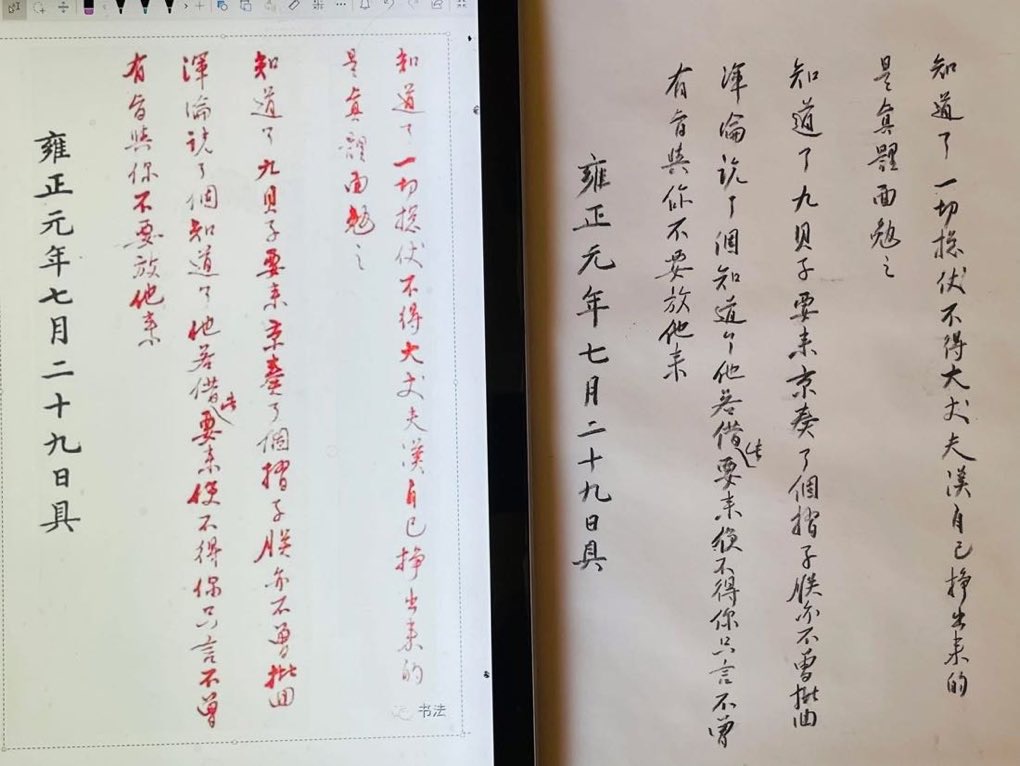 知道了一切捴仗不得大丈夫漢自己掙出来的
是真體面勉之
知道了九貝子要来京奏了個摺子朕亦不曾批回
渾淪說了個知道了他若借此要来使不得你只言不曾
有旨與你不要放他来
雍正元年七月二十九日具
书法
知道了一切捴仗不得大丈夫漢自己掙出来的
是真體面勉之
知道了九貝子要来京奏了個摺子朕亦不曾批回
渾淪說了個知道了他若借此要来使不得你只言不曾
有旨與你不要放他来
雍正元年七月二十九日具